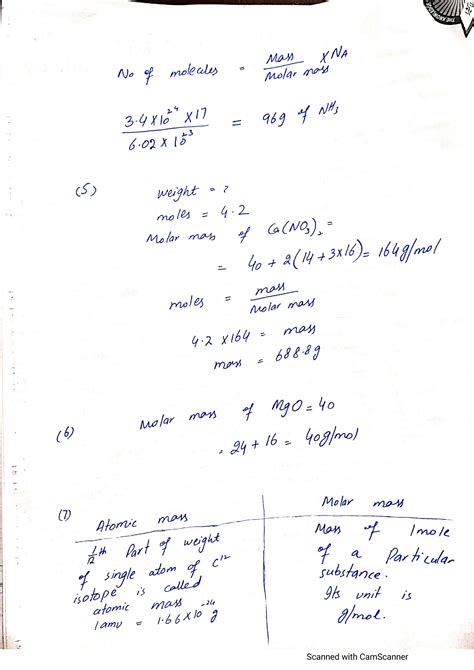 No of molecules = Mass / Molar mass × NA
3.4 × 10^24 × 17 / 6.02 × 10^23 = 96g of NH3
(5) weight = ?
moles = 4.2
Molar mass of Ca(NO3)2 =
= 40 + 2(14 + 3×16) = 164g/mol
moles = mass / Molar mass
4.2 × 164 = mass
mass = 688.8g
(6) Molar mass of MgO = 40
= 24 + 16 = 40g/mol
(7) Atomic mass
1/12 th Part of weight
of single atom of C12
isotope is called
atomic mass
1 amu = 1.66 × 10^-24 g
Molar mass
Mass of 1mole
of a Particular
substance.
Its unit is
g/mol.
Scanned with CamScanner